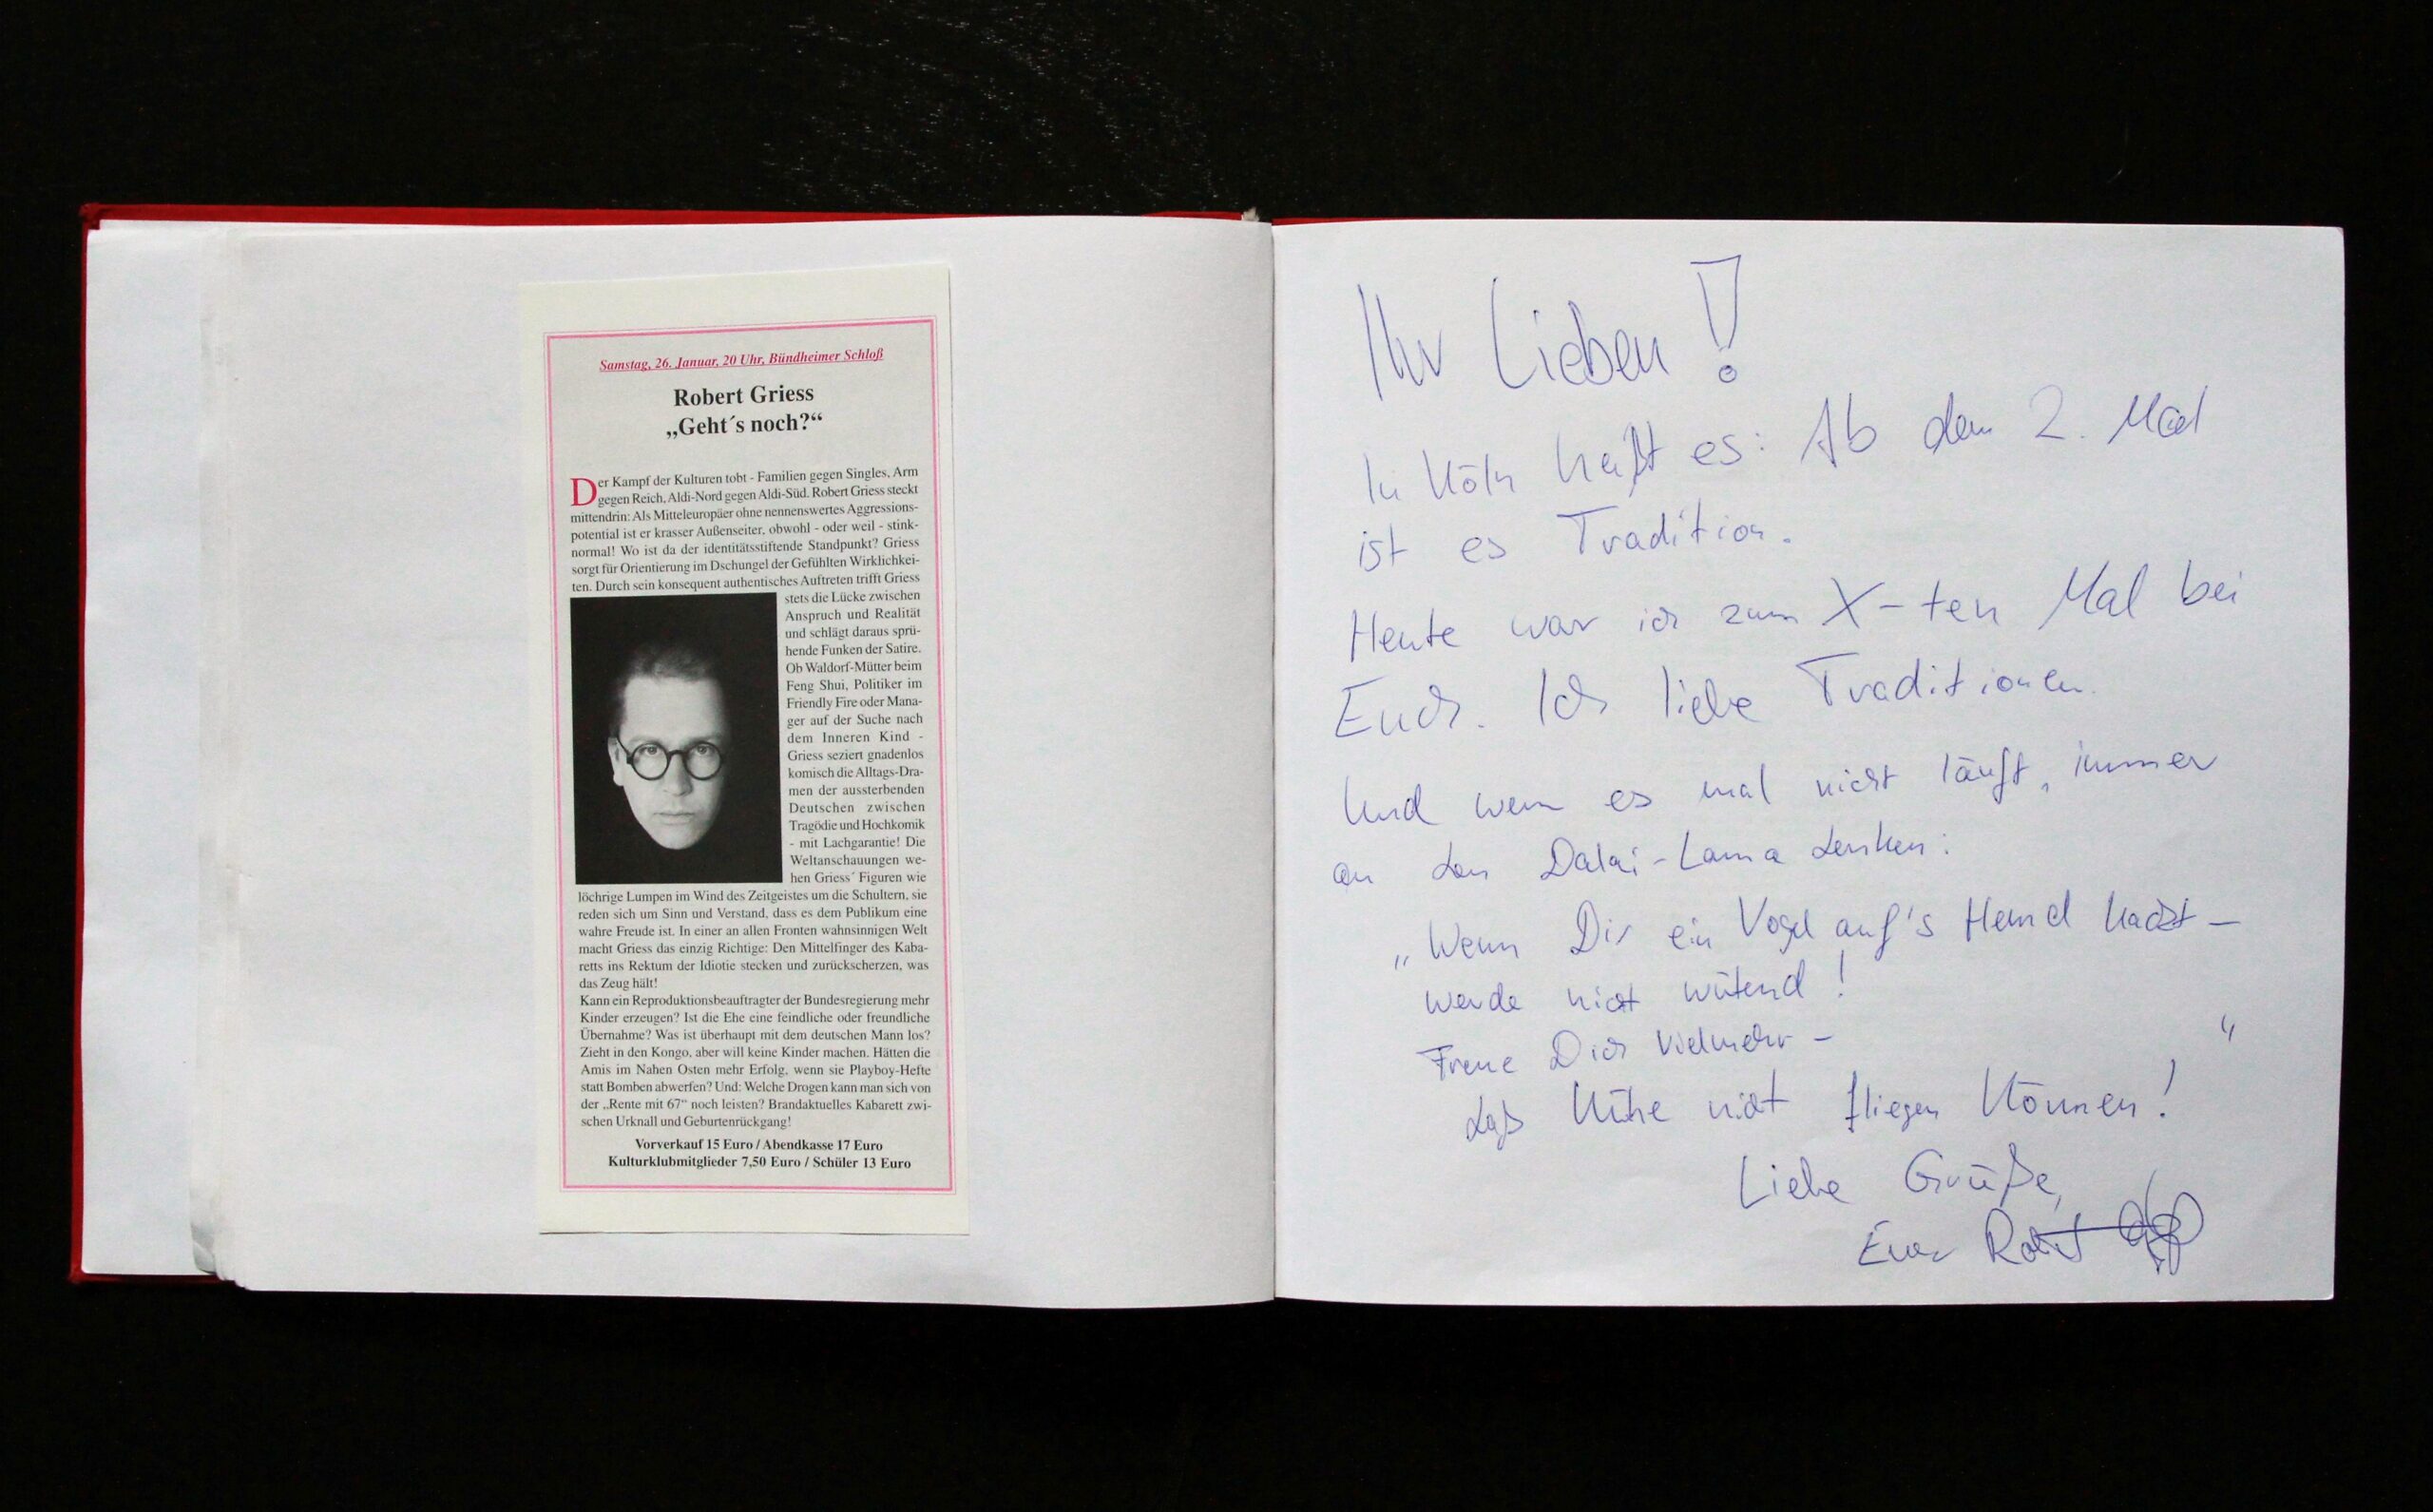 Samstag, 26. Januar, 20 Uhr, Bündheimer Schloß
Robert Griess
„Geht´s noch?“
Der Kampf der Kulturen tobt - Familien gegen Singles, Arm
gegen Reich, Aldi-Nord gegen Aldi-Süd. Robert Griess steckt
mittendrin: Als Mitteleuropäer ohne nennenswertes Aggressions-
potential ist er krasser Außenseiter, obwohl - oder weil - stink-
normal! Wo ist da der identitätsstiftende Standpunkt? Griess
sorgt für Orientierung im Dschungel der Gefühlten Wirklichkei-
ten. Durch sein konsequent authentisches Auftreten trifft Griess
stets die Lücke zwischen
Anspruch und Realität
und schlägt daraus sprü-
hende Funken der Satire.
Ob Waldorf-Mütter beim
Feng Shui, Politiker im
Friendly Fire oder Mana-
ger auf der Suche nach
dem Inneren Kind -
Griess seziert gnadenlos
komisch die Alltags-Dra-
men der aussterbenden
Deutschen zwischen
Tragödie und Hochkomik
- mit Lachgarantie! Die
Weltanschauungen we-
hen Griess´ Figuren wie
löchrige Lumpen im Wind des Zeitgeistes um die Schultern, sie
reden sich um Sinn und Verstand, dass es dem Publikum eine
wahre Freude ist. In einer an allen Fronten wahnsinnigen Welt
macht Griess das einzig Richtige: Den Mittelfinger des Kaba-
retts ins Rektum der Idiotie stecken und zurückscherzen, was
das Zeug hält!
Kann ein Reproduktionsbeauftragter der Bundesregierung mehr
Kinder erzeugen? Ist die Ehe eine feindliche oder freundliche
Übernahme? Was ist überhaupt mit dem deutschen Mann los?
Zieht in den Kongo, aber will keine Kinder machen. Hätten die
Amis im Nahen Osten mehr Erfolg, wenn sie Playboy-Hefte
statt Bomben abwerfen? Und: Welche Drogen kann man sich von
der „Rente mit 67“ noch leisten? Brandaktuelles Kabarett zwi-
schen Urknall und Geburtenrückgang!
Vorverkauf 15 Euro / Abendkasse 17 Euro
Kulturklubmitglieder 7,50 Euro / Schüler 13 Euro
Ihr Lieben!
In Köln heißt es: Ab dem 2. Mal
ist es Tradition.
Heute war ich zum X-ten Mal bei
Euch. Ich liebe Traditionen.
Und wenn es mal nicht läuft, immer
an den Dalai-Lama denken:
„Wenn Dir ein Vogel auf's Hemd kackt -
werde nicht wütend!
Freue Dich vielmehr -
daß Kühe nicht fliegen können!“
Liebe Grüße,
Euer Robert